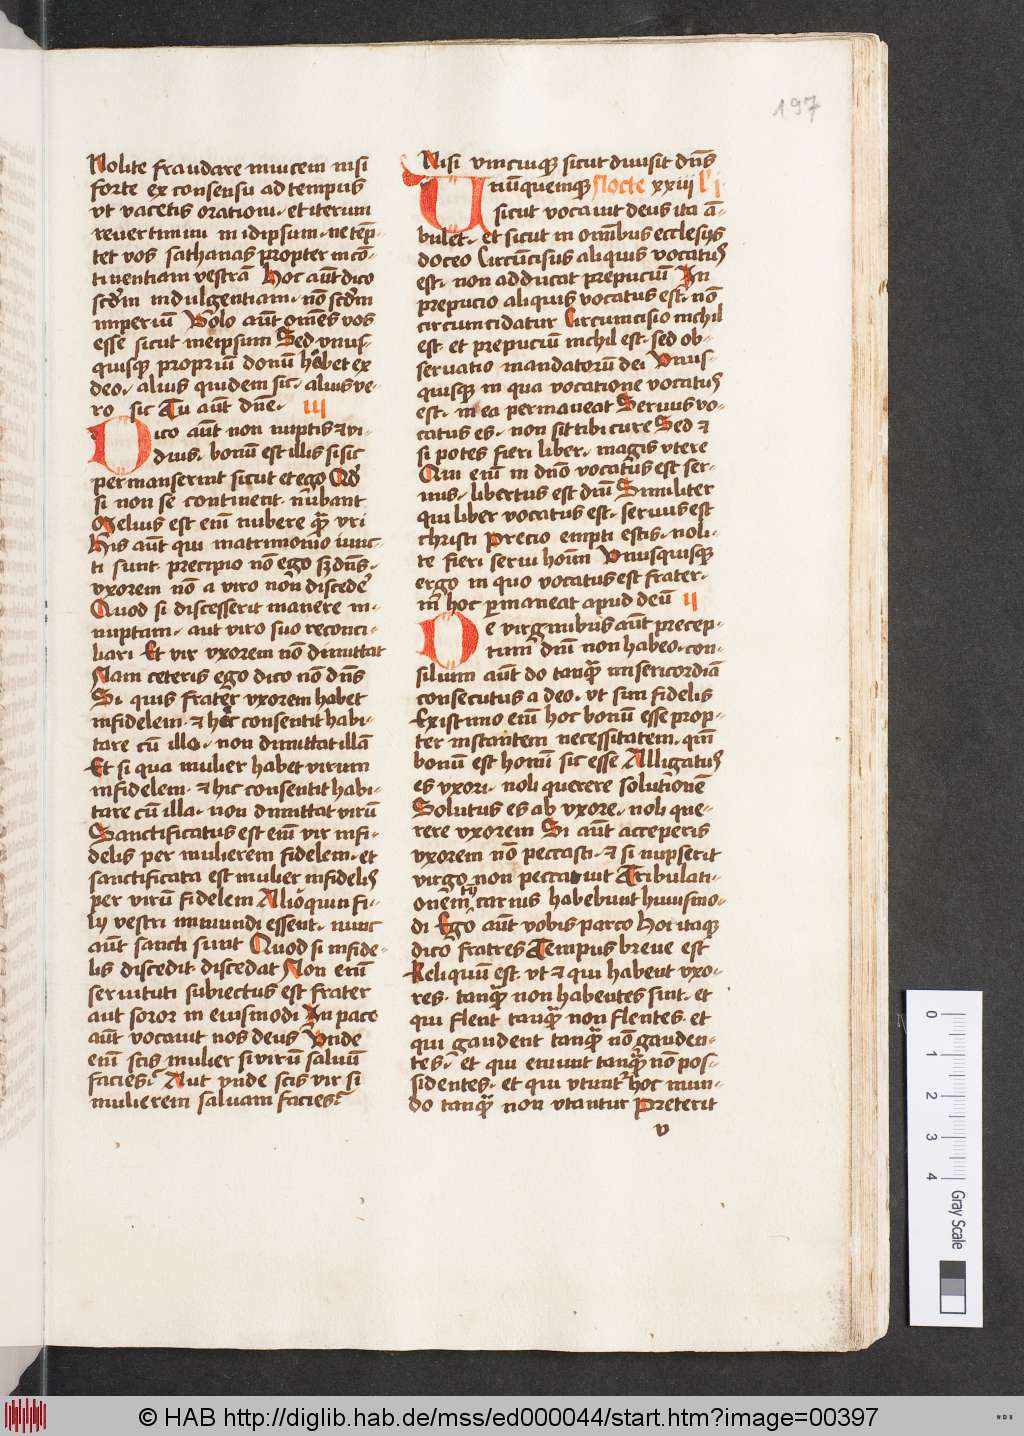 197
Nolite fraudare inuicem nisi
forte ex consensu ad tempus
vt vacetis orationi· et iterum
reuertimini in idipsum· ne tēp-
tet vos sathanas propter incō-
tinentiam vestrā Hoc aūt dico
scd̄m indulgentiam· nō scd̄m
imperiū Volo aūt omēs vos
esse sicut meipsum Sed vnus-
quisqꝫ propriū donū habet ex
deo· alius quidem sic· alius ve-
ro sic Tu aūt dn̄e· III
Dico aūt non nuptis ⁊ vi-
duis· bonū est illis si sic
permanserint sicut et ego Qd̓
si non se continent· nubant
Melius est em̄ nubere qͣꝫ vri
His aūt qui matrimonio iunc-
ti sunt· precipio nō ego sꝫ dn̄s·
vxorem nō a viro non discedē
Quod si discesserit manere in-
nuptam· aut viro suo reconci-
liari Et vir vxorem nō dimittat
Nam ceteris ego dico nō dn̄s
Si quis frater vxorem habet
infidelem· ⁊ hec consentit habi-
tare cū illo· non dimittat illā
Et si qua mulier habet virum
infidelem· ⁊ hic consentit habi-
tare cū illa· non dimittat virū
Sanctificatus est em̄ vir infi-
delis per mulierem fidelem· et
sanctificata est mulier infidelis
per virū fidelem Alioquin fi-
lij vestri inmundi essent· nunc
aūt sancti sunt Quod si infide-
lis discedit· discedat Non em̄
seruituti subiectus est frater
aut soror in eiusmodi In pace
aūt vocauit nos deus Vnde
em̄ scis mulier si virū saluū
facies? Aut vnde scis vir si
mulierem saluam facies?
Nisi vnicuiqꝫ sicut diuisit dn̄s
Vnūquemqꝫ Nocte xxiii L i
sicut vocauit deus ita ā-
bulet· et sicut in om̄ibus ecclesijs
doceo Circūcisus aliquis vocatus
est· non adducat prepuciū In
prepucio aliquis vocatus est· nō
circumcidatur Circumcisio nichil
est· et prepuciū nichil est· sed ob-
seruatio mandatorū dei Vnus-
quisqꝫ in qua vocatione vocatus
est· in ea permaneat Seruus vo-
catus es· non sit tibi cure Sed ⁊
si potes fieri liber· magis vtere
Qui em̄ in dn̄o vocatus est ser-
uus· libertus est dn̄i Similiter
qui liber vocatus est· seruus est
christi Precio empti estis· noli-
te fieri serui hoīm Vnusquisqꝫ
ergo in quo vocatus est frater·
in̄ hoc ꝑmaneat apud deū II
De virginibus aūt precep-
tum dn̄i non habeo· con-
silium aūt do tanqͣꝫ misericordiā
consecutus a deo· vt sim fidelis
Existimo em̄ hoc bonū esse prop-
ter instantem necessitatem· qm̄
bonū est homī sic esse Alligatus
es vxori· noli querere solutionē
Solutus es ab vxore· noli que-
rere vxorem Si aūt acceperis
vxorem nō peccasti· ⁊ si nupserit
virgo non peccauit Tribulati-
onem tn̄ carnis habebunt huiusmo-
di Ego aūt vobis parco Hoc itaqꝫ
dico fratres Tempus breue est
Reliquū est· vt ⁊ qui habent vxo-
res· tanqͣꝫ non habentes sint· et
qui flent tanqͣꝫ non flentes· et
qui gaudent tanqͣꝫ nō gauden-
tes· et qui emunt tanqͣꝫ nō pos-
sidentes· et qui vtunt̄ hoc mun-
do tanqͣꝫ non vtantur Preterit
v
0 1 2 3 4 Gray Scale
© HAB http://diglib.hab.de/mss/ed000044/start.htm?image=00397